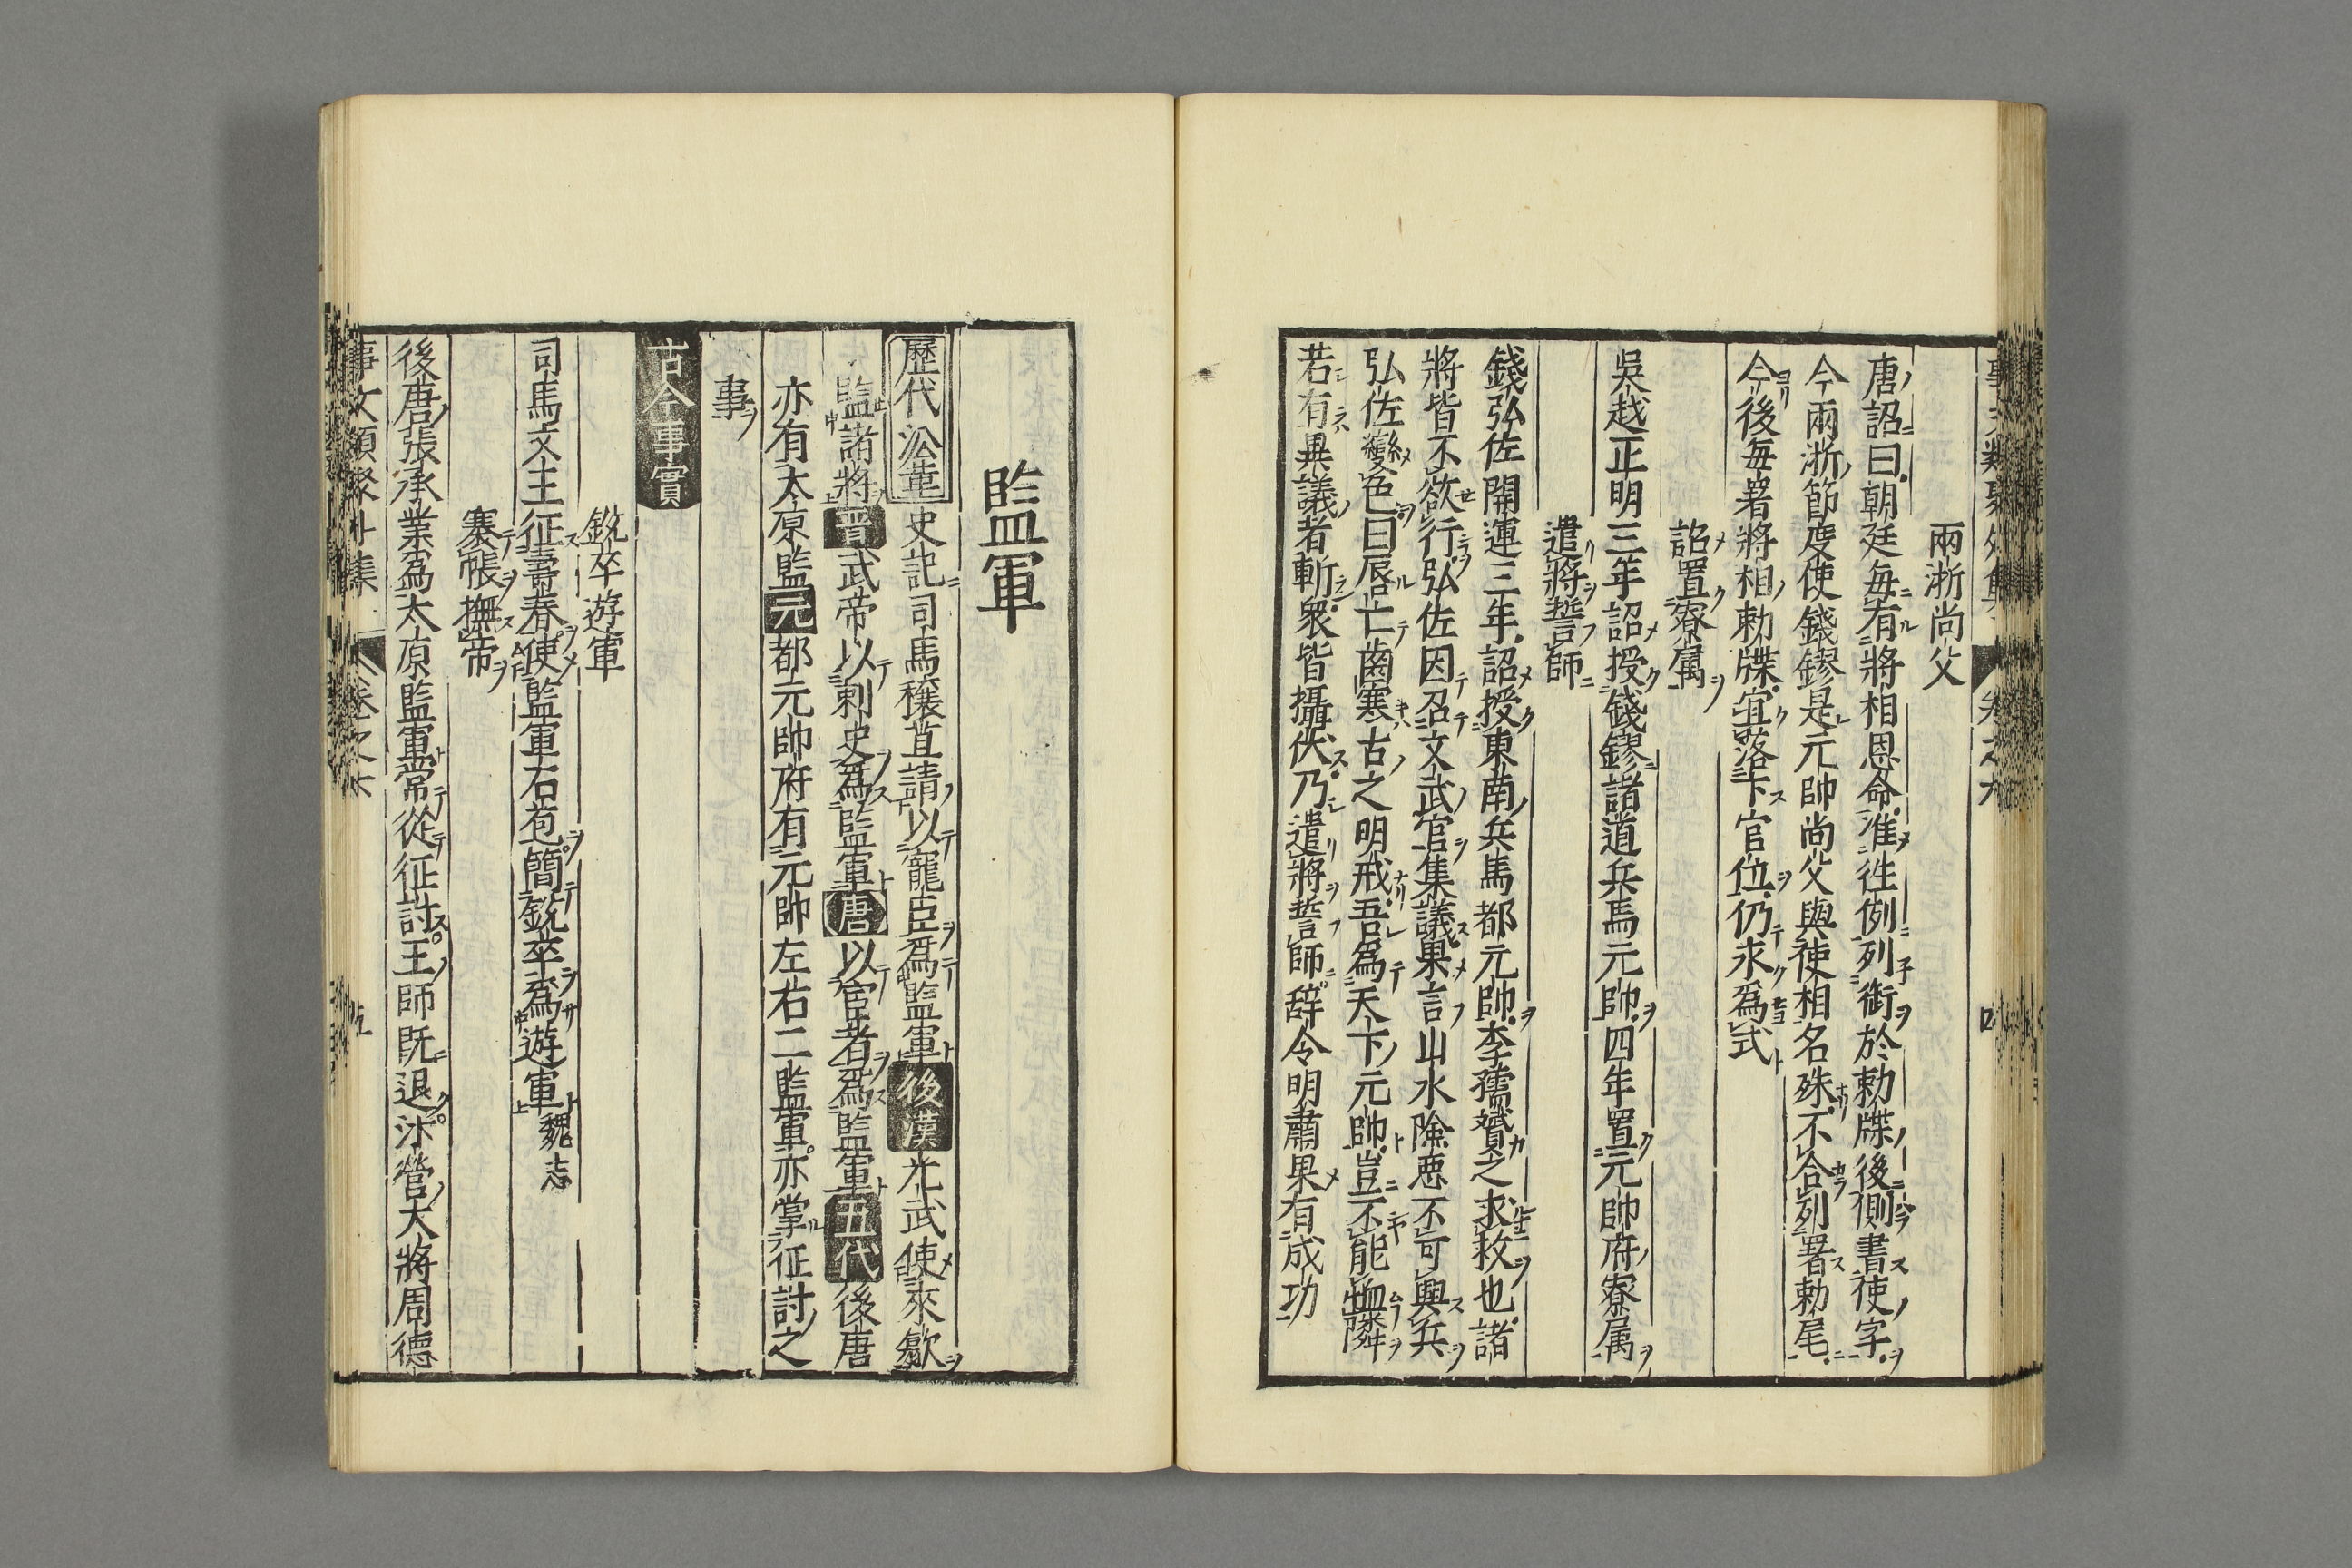 兩浙尚父
唐詔曰朝廷每有將相恩命准徃例列銜於勅牒後側書使字
今兩浙節度使錢鏐是元帥尚父與使相名殊不合列署勅尾
今後每署將相勅牒宜落下官位仍求爲式
詔置寮属
吳越正明三年詔授錢鏐諸道兵馬元帥四年置元帥府寮属
遣將誓師
錢弘佐開運三年詔授東南兵馬都元帥李孺贇之求救也諸
將皆不欲行弘佐因召文武官集議果言山水險悪不可興兵
弘佐變色曰唇亡齒寒古之明戒吾爲天下元帥豈不能恤隣
若有異議者斬衆皆攝伏乃遣將誓師辞令明肅果有成功
監軍
歷代沿革 史記司馬穰苴請以寵臣爲監軍後漢光武使來歙
監諸將晋武帝以剌史爲監軍唐以宦者爲監軍五代後唐
亦有太原監元都元帥府有元帥左右二監軍亦掌征討之
事
古今事實
銳卒遊軍
司馬文王征壽春使監軍石苞簡銳卒爲遊軍魏志
寨帳撫帝
後唐張承業爲太原監軍常從征討王師既退汴營大將周德
事文類聚外集 卷之六